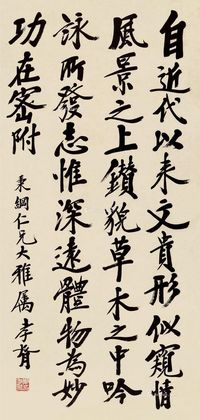 自近代以来文貴形似窺情
風景之上鑽貌草木之中吟
詠所發志惟深遠體物為妙
功在密附
秉綱仁兄大雅属孝胥